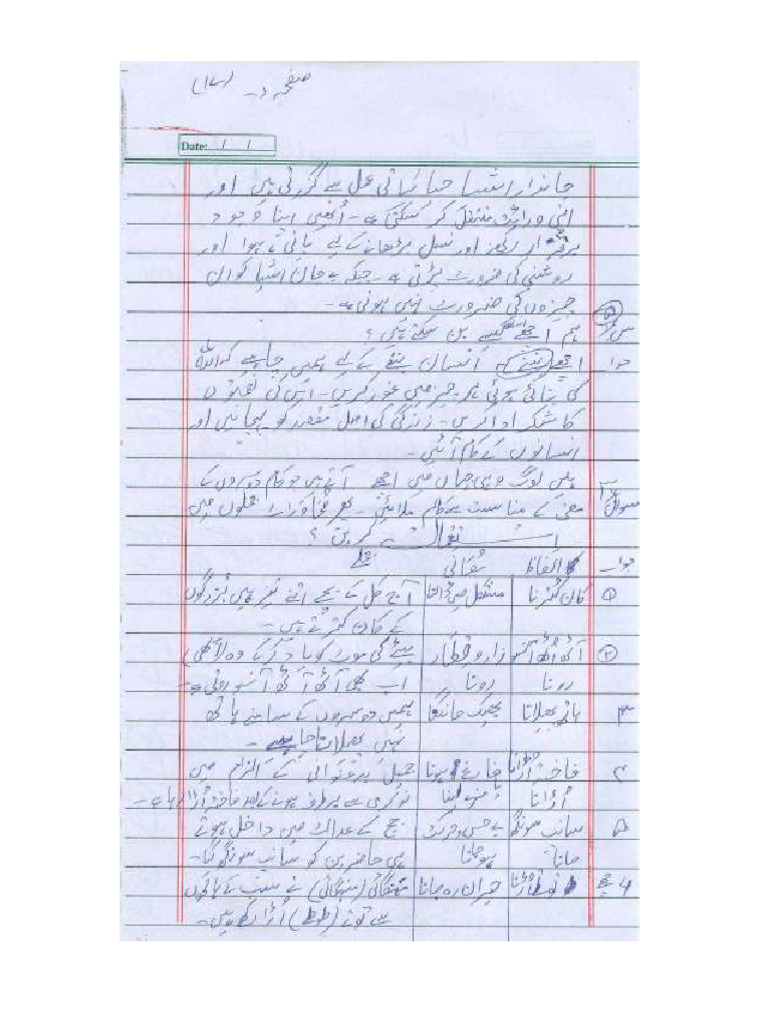 صفحہ نمبر (12)
Date: / /
جاندار اشیا حیاتیاتی عمل سے گزرتی ہیں اور
اپنی وراثت منتقل کر سکتی ہے۔ اُنھیں اپنا وجود
برقرار رکھنے اور نسل بڑھانے کے لیے پانی، ہوا اور
روشنی کی ضرورت پڑتی ہے۔ جبکہ بے جان اشیا کو ان
چیزوں کی ضرورت نہیں ہوتی ہے۔
س ۵ ہم اچھے کیسے بن سکتے ہیں؟
جواب اچھے بننے انسان بننے کے لیے ہمیں چاہیے کہ اللہ
کی بنائی ہوئی ہر چیز میں غور کریں۔ اُس کی نعمتوں
کا شکر ادا کریں۔ زندگی کی اصل مقصد کو پہچانیں اور
انسانوں کے کام آئیں۔
ہیں لوگ وہی جہاں میں اچھے آتے ہیں جو کام دوسروں کے
سوال معنی کے مناسبت سے کالم ملائیں۔ پھر محاورات جملوں میں
استعمال کریں؟
جواب الفاظ معانی جملے
① کان کترنا مشکل میں ڈالنا آج کل کے بچے اتنے تیز ہیں بزرگوں
کے کان کترتے ہیں۔
② آٹھ آٹھ آنسو زار و قطار بیٹے کی موت کو یاد کر کے وہ
رونا رونا اب بھی آٹھ آٹھ آنسو روتی ہے۔
۳ ہاتھ پھیلانا بھیک مانگنا ہمیں دوسروں کے سامنے ہاتھ
نہیں پھیلانا چاہیے۔
۴ فاختہ اُڑانا فارغ ہونا جمیل بدعنوانی کے الزام میں
اُڑانا نوکری سے برطرف ہونے کے بعد فاختہ اُڑا رہا ہے۔
۵ سانپ سونگھ بے حس و حرکت جج کے عدالت میں داخل ہوتے
جانا ہو جانا ہی حاضرین کو سانپ سونگھ گیا۔
۶ طوطے اڑنا حیران رہ جانا مہنگائی (مہنگائی) نے سب کے ہاتھوں
سے توتے (طوطے) اُڑا رکھے ہیں۔